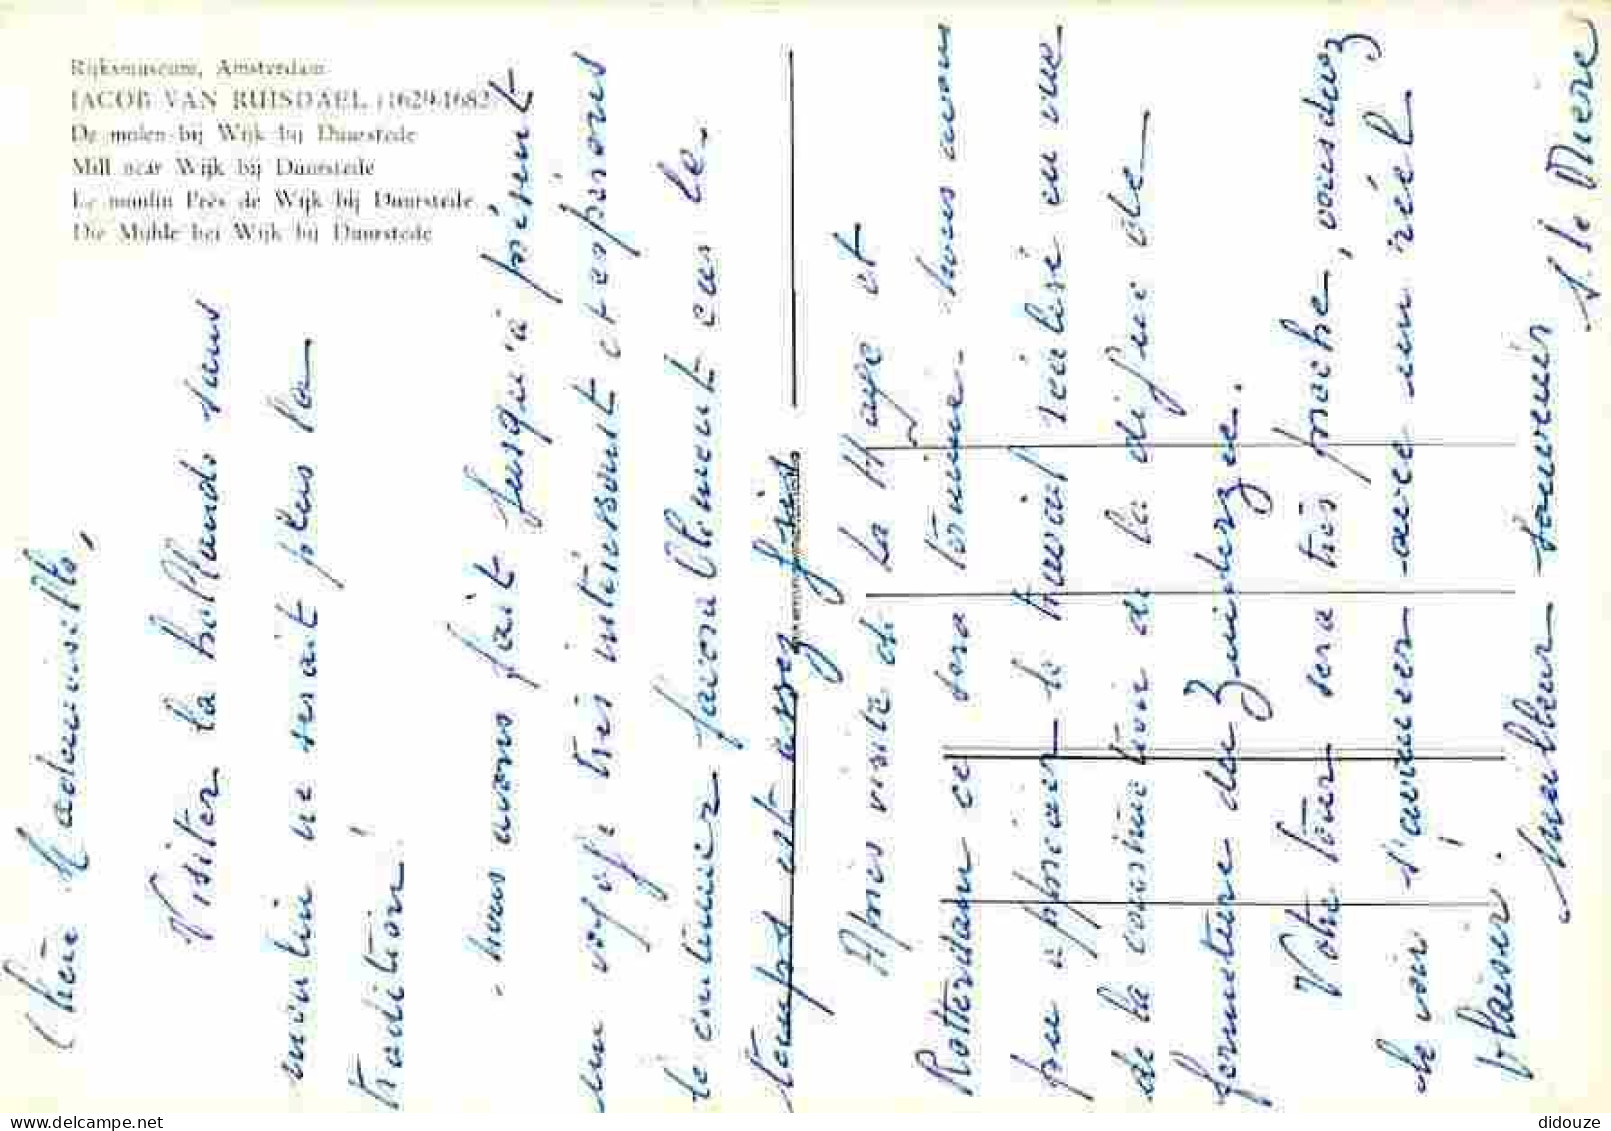 Rijksmuseum, Amsterdam
JACOB VAN RUISDAEL (1629-1682)
De molen bij Wijk bij Duurstede
Mill near Wijk bij Duurstede
Le moulin Près de Wijk bij Duurstede
Die Mühle bei Wijk bij Duurstede
Chère Mademoiselle,
Visiter la hollande sans
moulin ne serait plus la
tradition!
nous avons fait jusqu'à présent
un voyage très intéressant et espérons
le continuer favorablement car le
temps est assez frais
Après visite de La Haye et
Rotterdam ce sera terminé. nous avons
pu apprécier le travail réalisé en vue
de la construction de la digue de
fermeture du Zuiderzee.
Votre tour sera très proche, vous devez
le voir s'avancer avec un réel
plaisir.
Meilleur souvenir
delcampe.net
didouze